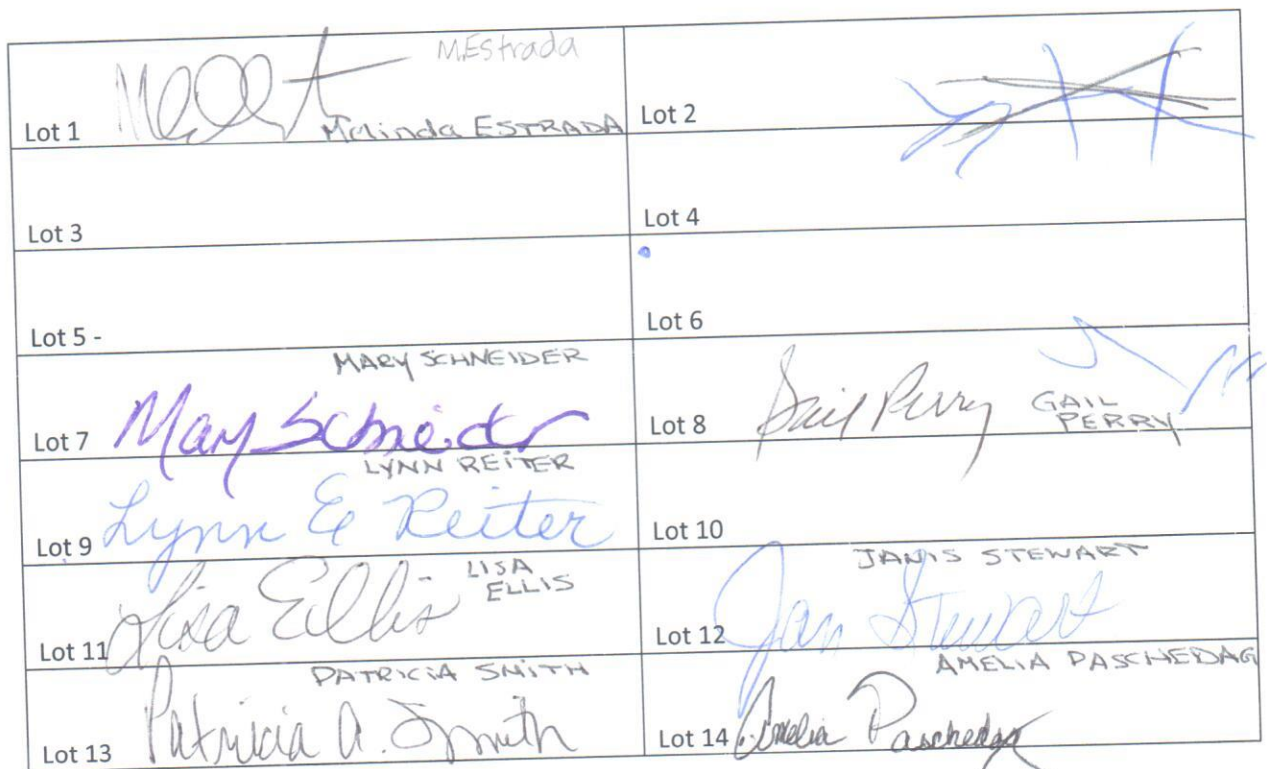 M.Estrada
Lot 1 Melinda ESTRADA
Lot 2
Lot 3
Lot 4
Lot 5 -
Lot 6
MARY SCHNEIDER
Lot 7 Mary Schneider
Lot 8 Gail Perry GAIL
PERRY
LYNN REITER
Lot 9 Lynn E Reiter
Lot 10
LISA
ELLIS
Lot 11 Lisa Ellis
JANIS STEWART
Lot 12 Jan Stewart
PATRICIA SMITH
Lot 13 Patricia A. Smith
AMELIA PASCHEDAG
Lot 14 Amelia Paschedag